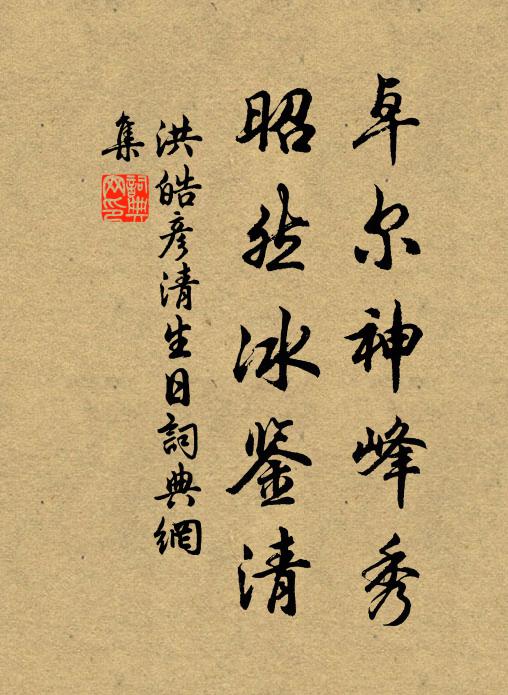 卓尔神峰秀
昭然冰鉴清
洪皓彦清生日詞典網
集
詞典
网印